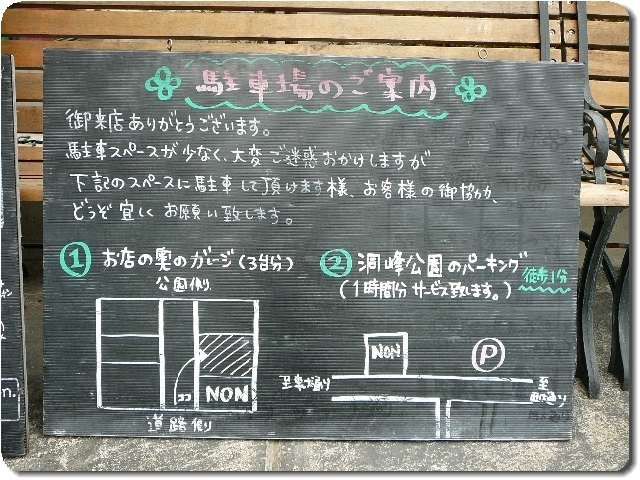 駐車場のご案内
御来店ありがとうございます。
駐車スペースが少なく、大変ご迷惑おかけしますが
下記のスペースに駐車して頂けます様、お客様の御協力、
どうぞ宜しくお願い致します。
① お店の奥のガレージ(3台分)
公園側
NON
ココ
道路側
② 洞峰公園のパーキング
(1時間分サービス致します。)
徒歩1分
NON
P
至東大通り
至
通り
n.